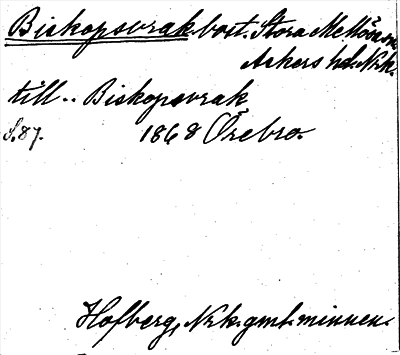 Biskopsvrak bost. Stora Mellösa sn
Askers hd. Nrk.
till.. Biskopsvrak
S. 87. 1868 Örebro.
Hofberg, Nrk. gml. minnen.